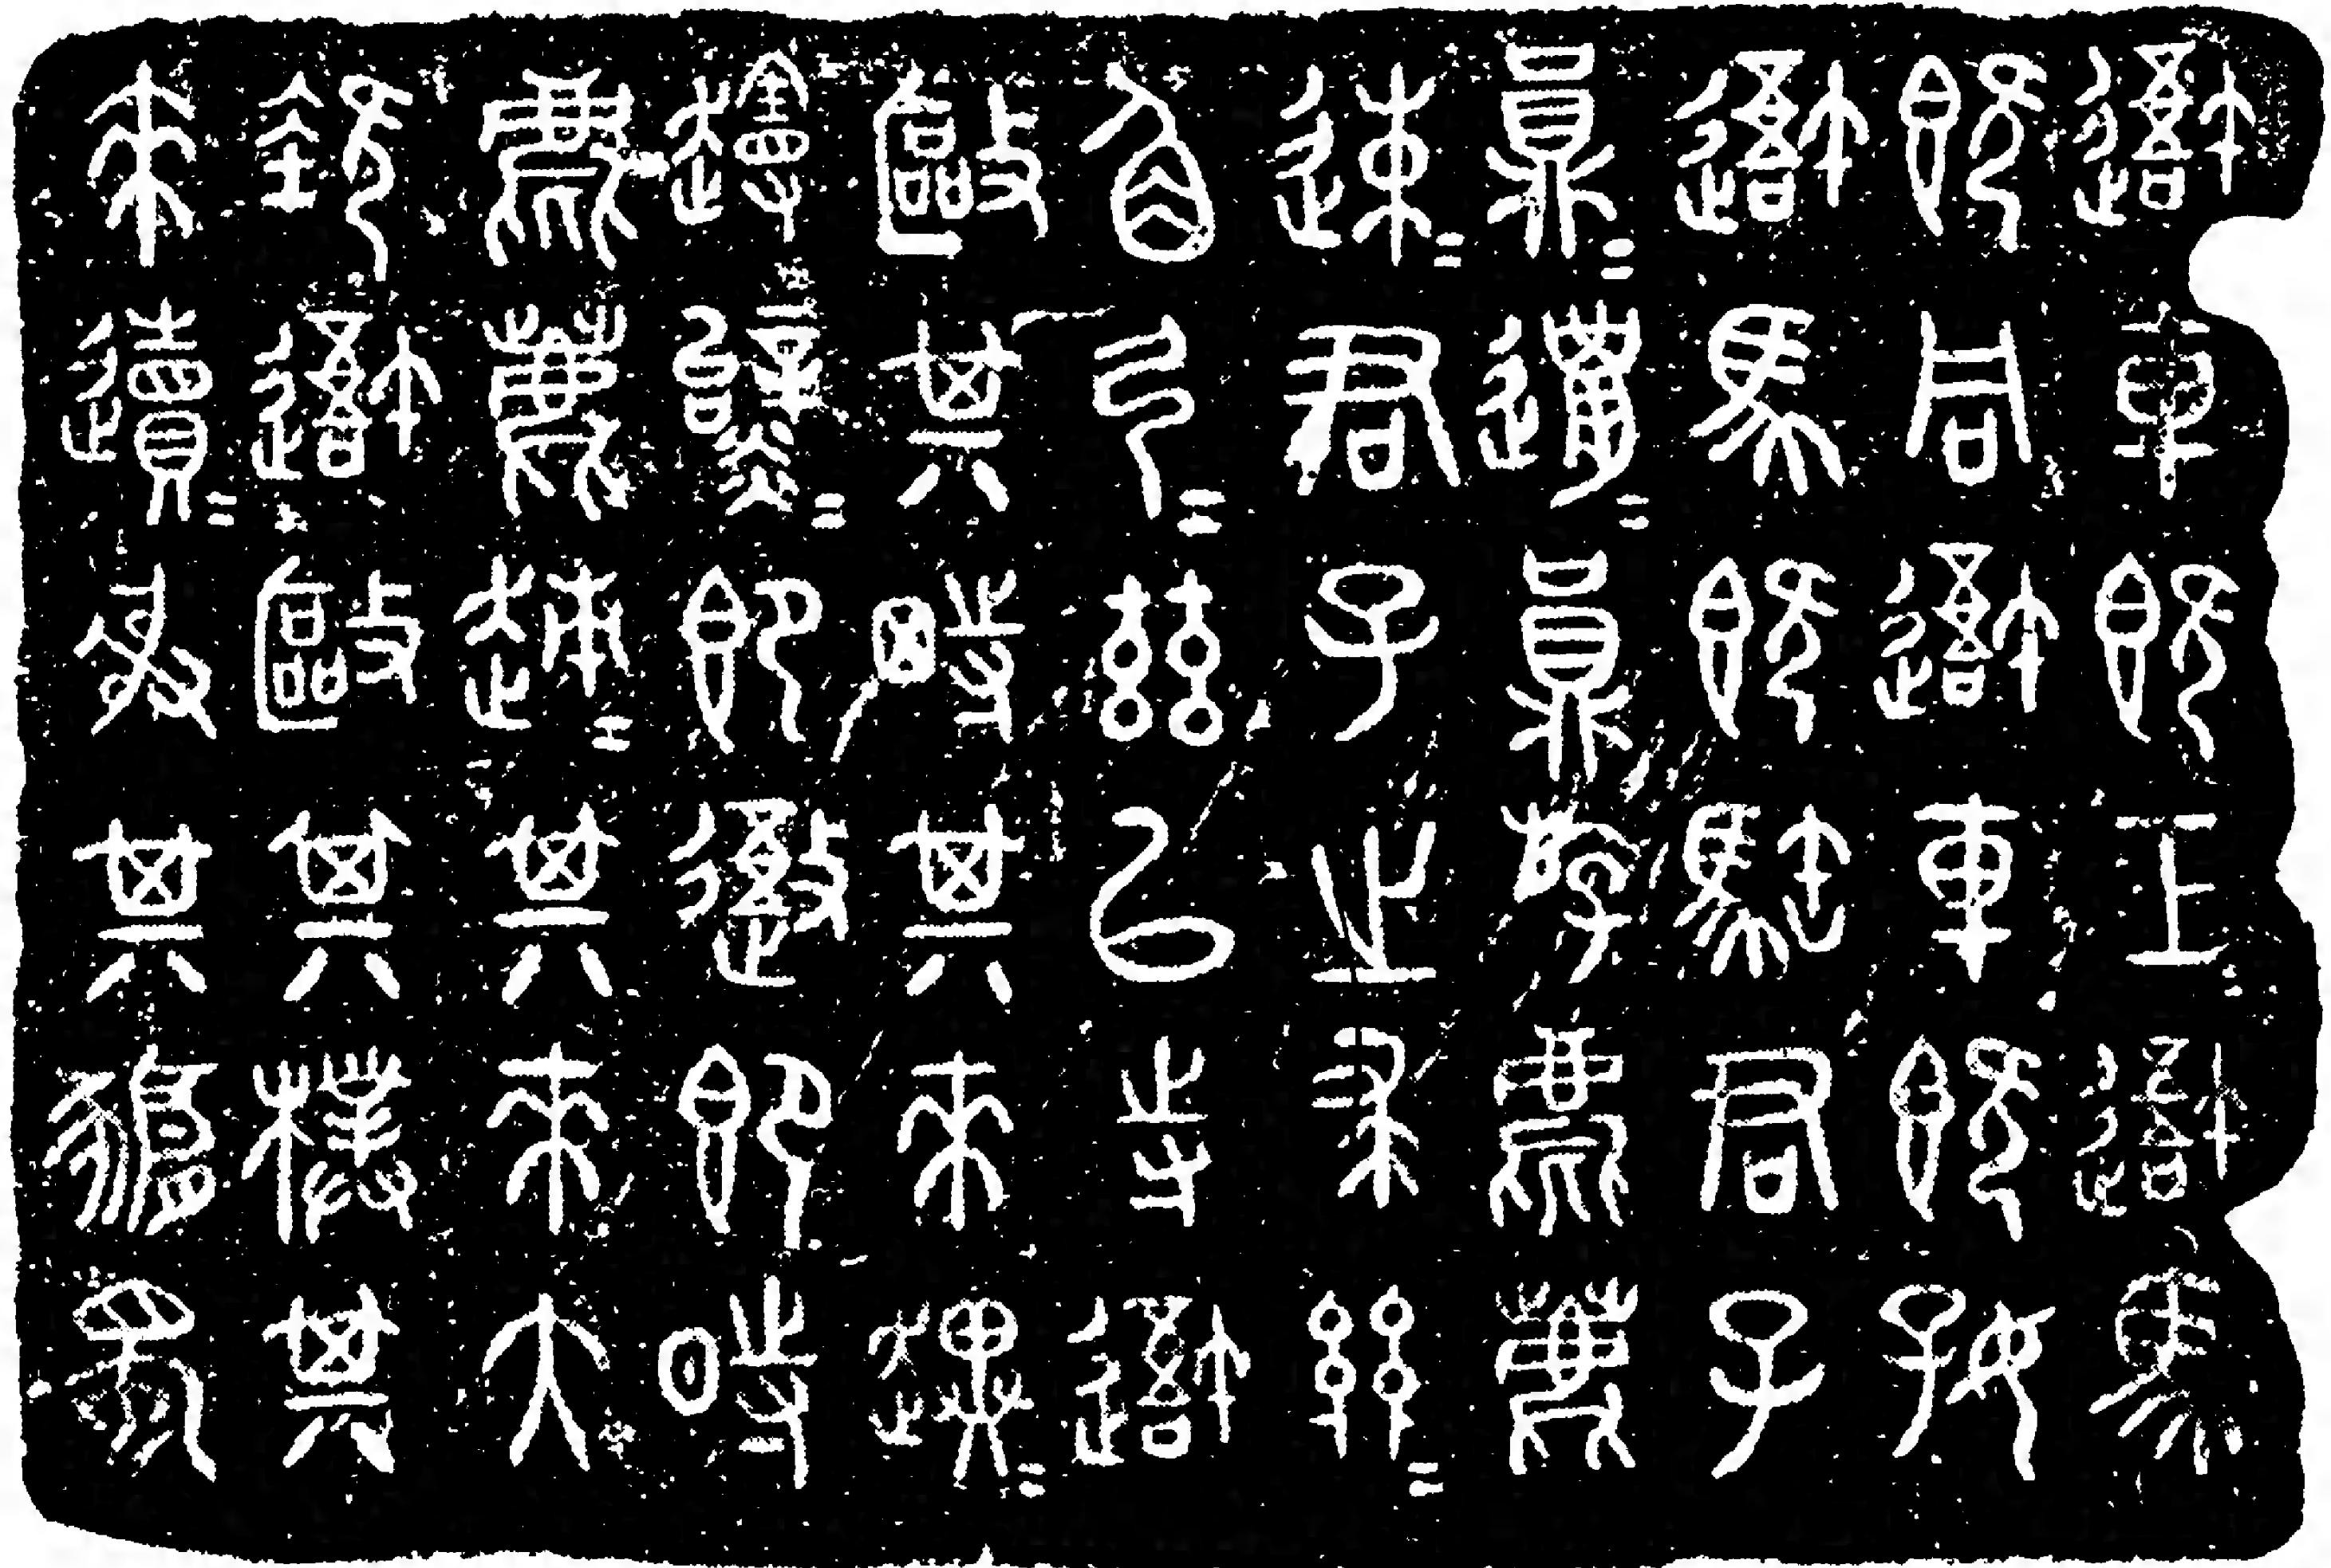 吾車既工吾馬
既同吾車既好
吾馬既𩡺君子
員=邋=員斿麀鹿
速=君子之求𢆶=
角弓=茲以寺吾
敺其畤其來趩=
即禦即時
麀鹿趚=其來大
吾敺其樸其
來遺=射其豜蜀